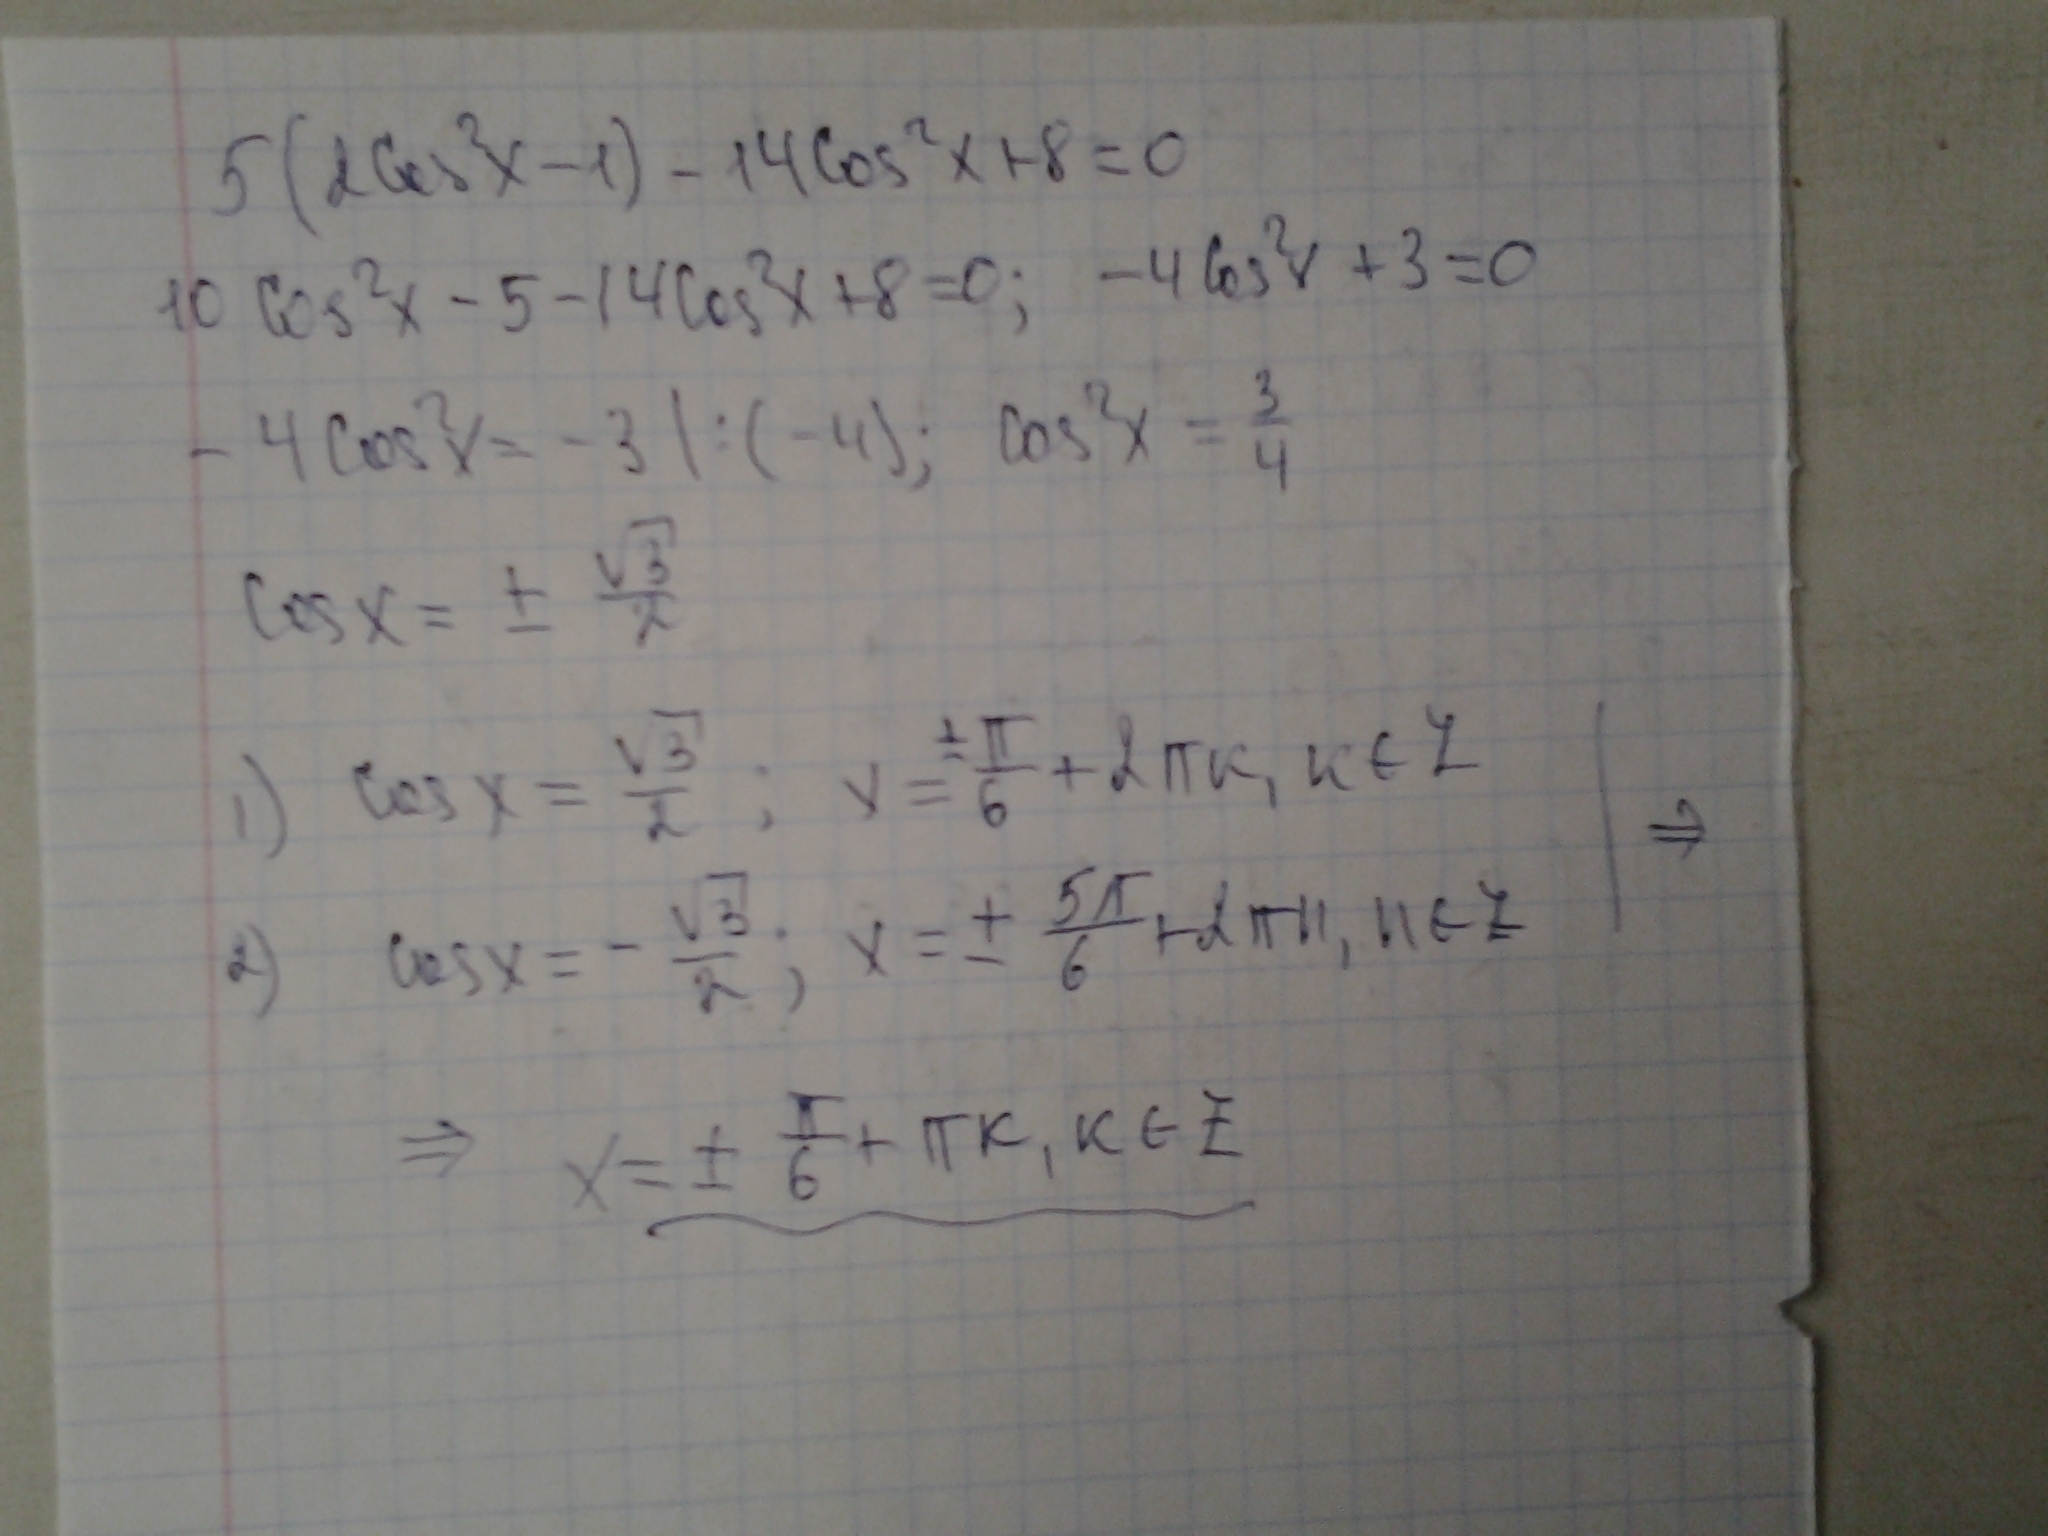 5(2cos²x-1)-14cos²x+8=0
10 cos²x-5-14cos²x+8=0; -4cos²x+3=0
-4cos²x=-3 |:(-4); cos²x = 3/4
cos x = ± √3/2
1) cos x = √3/2; x = ±π/6 + 2πк, к ∈ Z
⇒
2) cos x = -√3/2; x = ± 5π/6 + 2πn, n ∈ Z
⇒ x = ± π/6 + πк, к ∈ Z